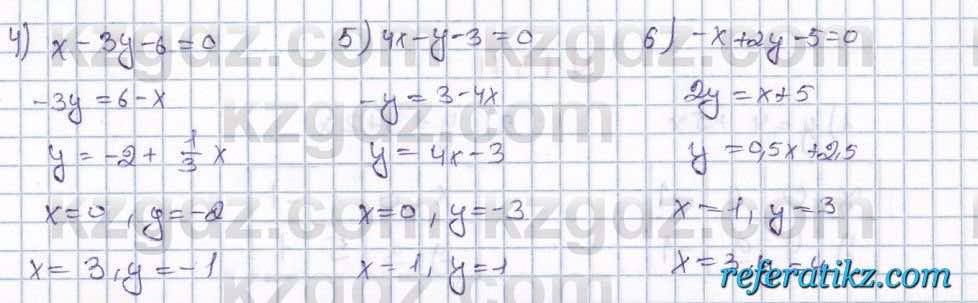 4) x - 3y - 6 = 0
-3y = 6 - x
y = -2 + 1/3 x
x = 0, y = -2
x = 3, y = -1
5) 4x - y - 3 = 0
-y = 3 - 4x
y = 4x - 3
x = 0, y = -3
x = 1, y = 1
6) -x + 2y - 5 = 0
2y = x + 5
y = 0,5x + 2,5
x = 1, y = 3
x = 3,
kzgdz.com
kzgdz.com
kzgdz.com
referatikz.com